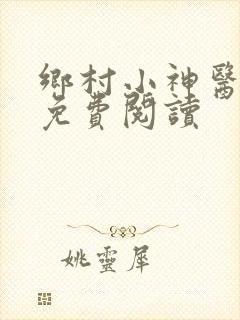 鄉村小神醫
免費閱讀
姚靈犀